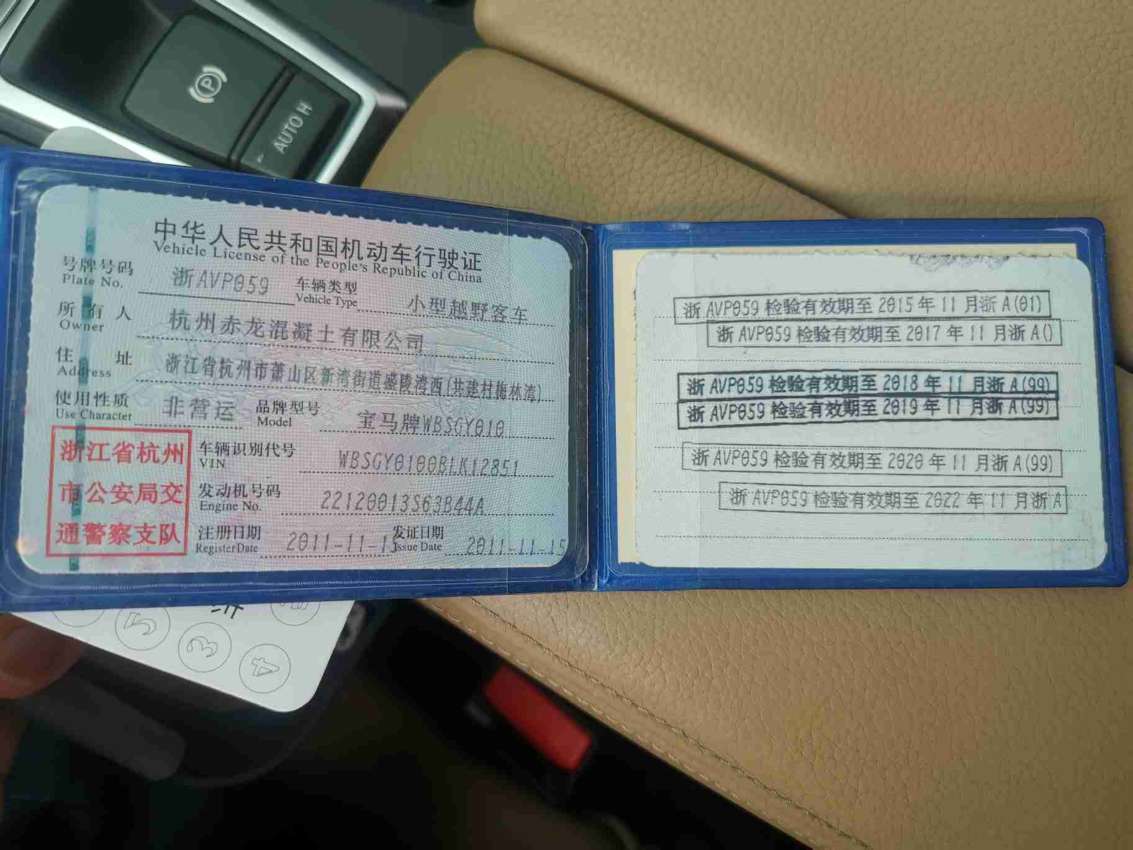 AUTO H
中华人民共和国机动车行驶证
Vehicle License of the People's Republic of China
号牌号码 浙AVP059 车辆类型 小型越野客车
Plate No. Vehicle Type
所有人 杭州赤龙混凝土有限公司
Owner
住址 浙江省杭州市萧山区新湾街道盛陵湾西(共建村梅林湾)
Address
使用性质 非营运 品牌型号 宝马牌WBSGY010
Use Character Model
浙江省杭州
市公安局交
通警察支队
车辆识别代号 WBSGY0100BLK12851
VIN
发动机号码 22120013S63B44A
Engine No.
注册日期 2011-11-15 发证日期 2011-11-15
Register Date Issue Date
浙AVP059检验有效期至2015年11月浙A(01)
浙AVP059检验有效期至2017年11月浙A()
浙AVP059检验有效期至2018年11月浙A(99)
浙AVP059检验有效期至2019年11月浙A(99)
浙AVP059检验有效期至2020年11月浙A(99)
浙AVP059检验有效期至2022年11月浙A
5
3
4